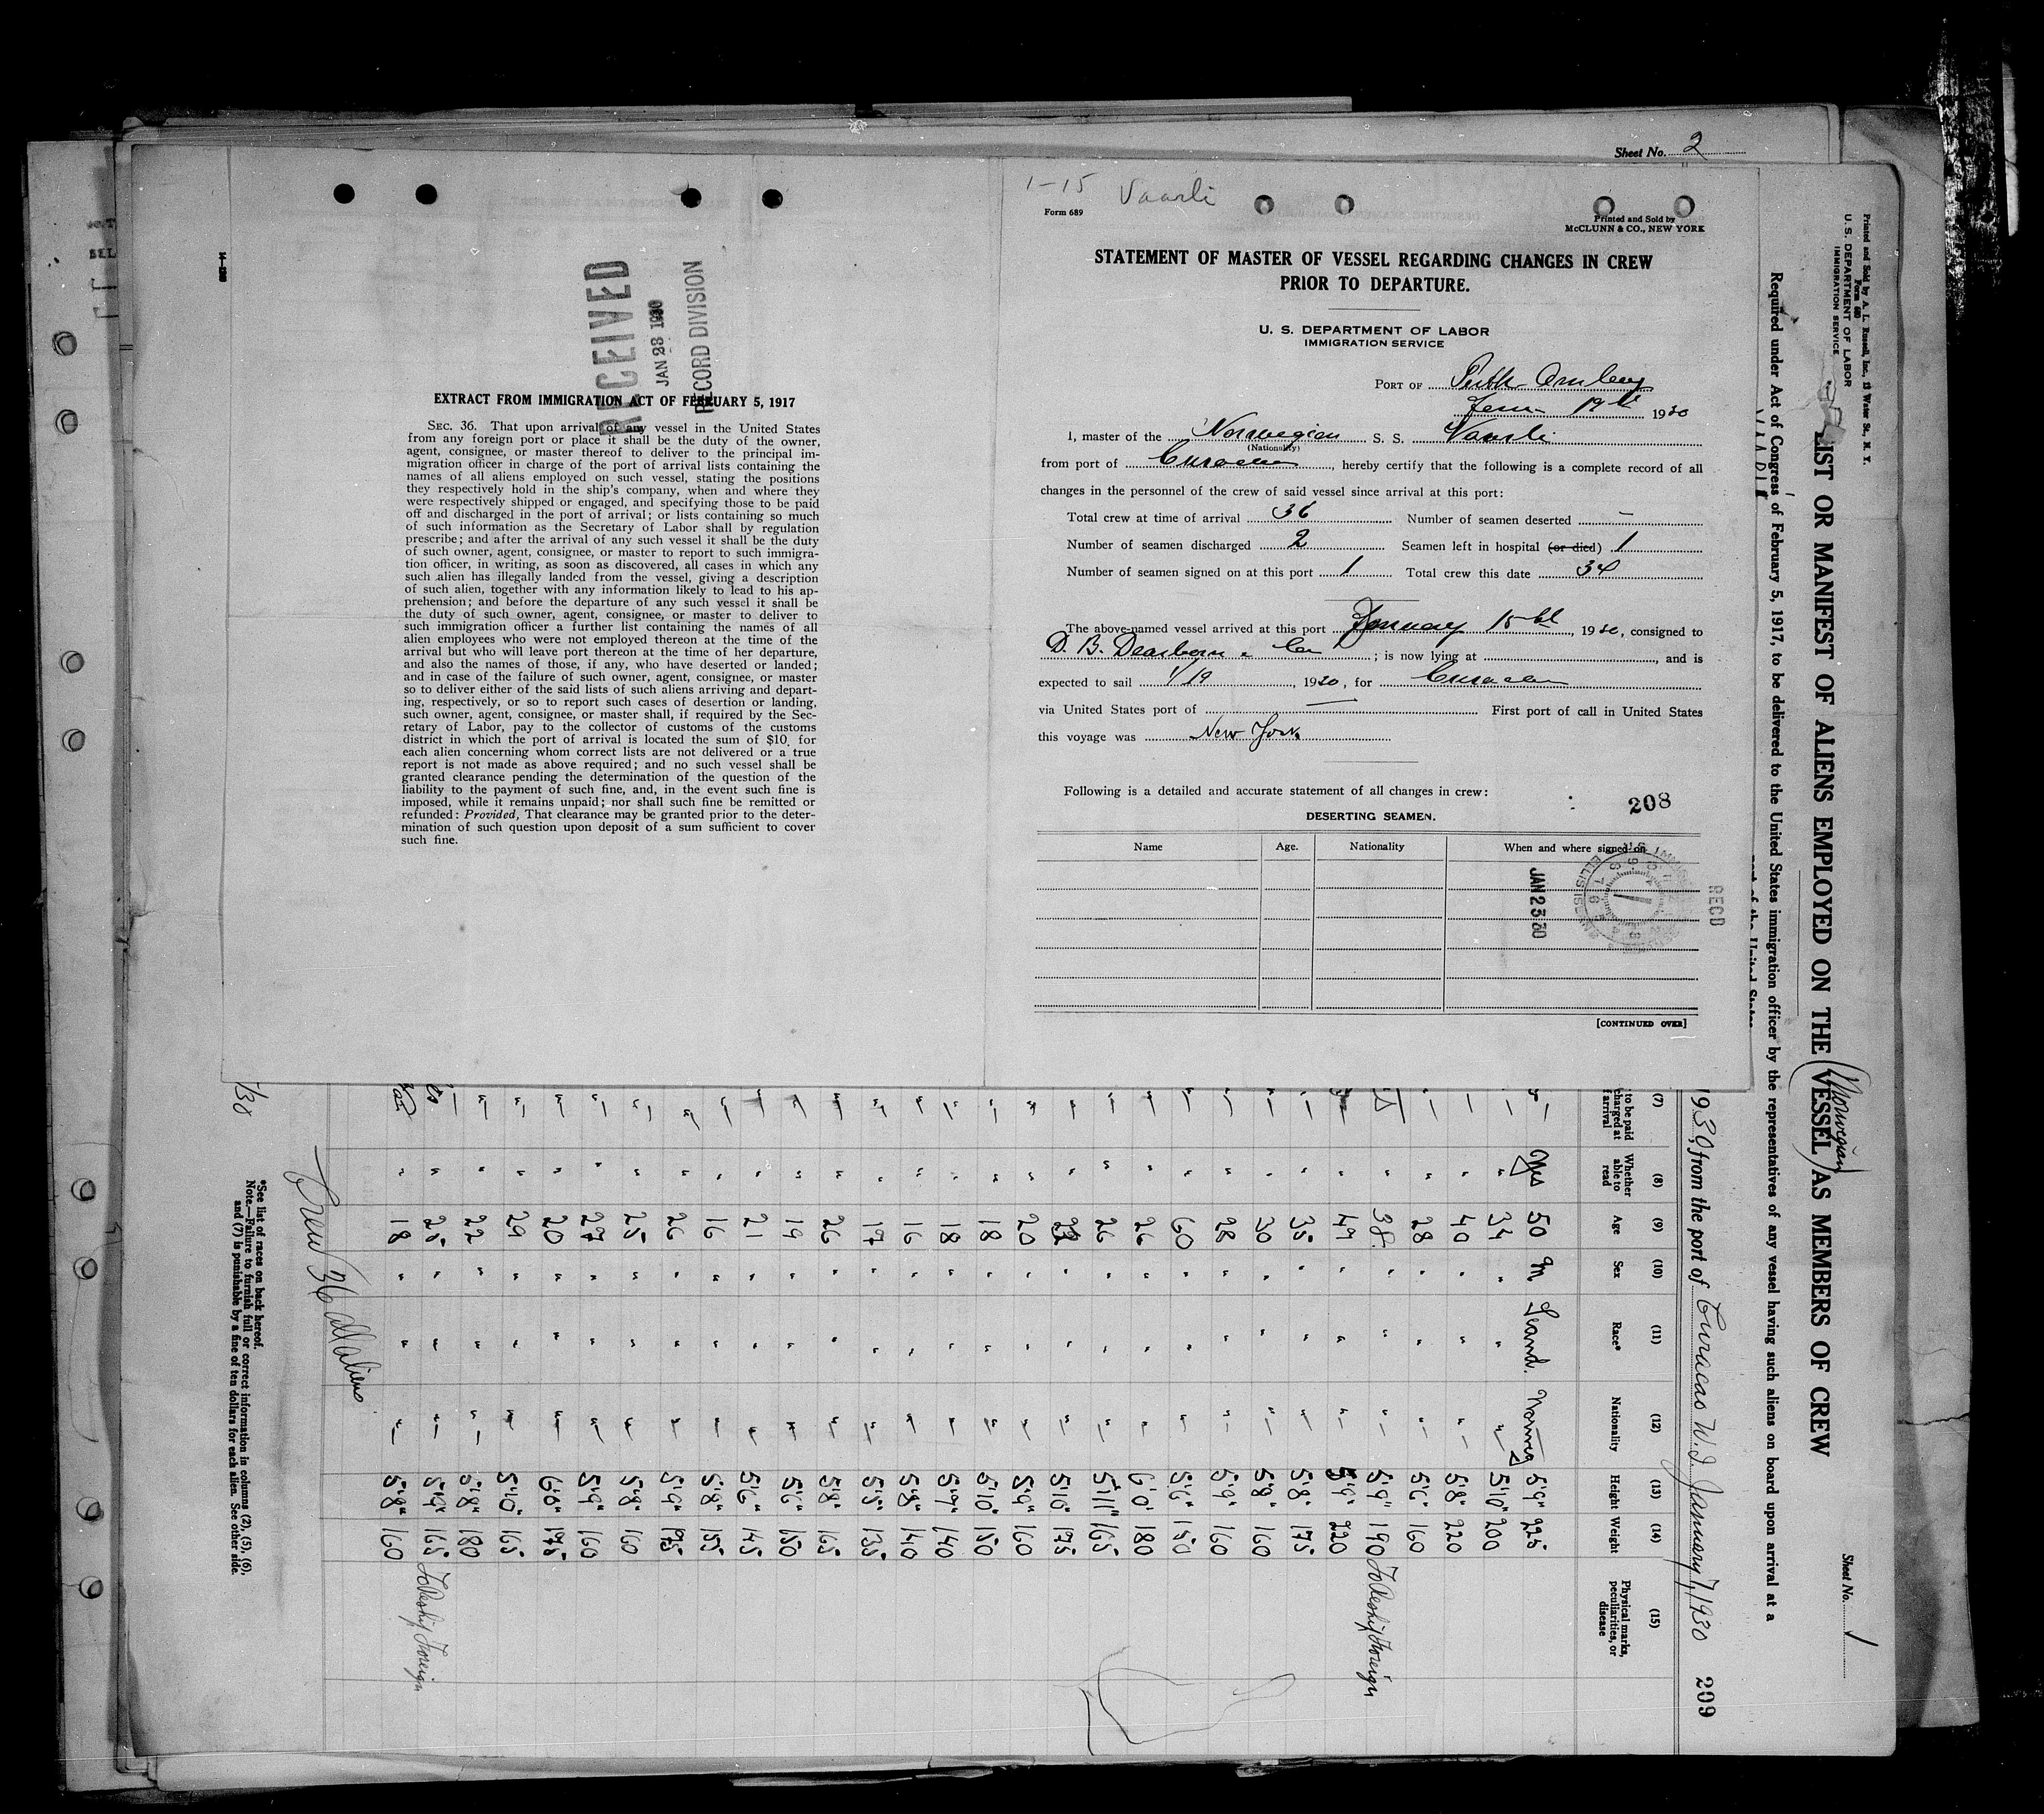 Sheet No. 2
14—1208
RECEIVED
JAN 23 1930
RECORD DIVISION
EXTRACT FROM IMMIGRATION ACT OF FEBRUARY 5, 1917
SEC. 36. That upon arrival of any vessel in the United States
from any foreign port or place it shall be the duty of the owner,
agent, consignee, or master thereof to deliver to the principal im-
migration officer in charge of the port of arrival lists containing the
names of all aliens employed on such vessel, stating the positions
they respectively hold in the ship's company, when and where they
were respectively shipped or engaged, and specifying those to be paid
off and discharged in the port of arrival; or lists containing so much
of such information as the Secretary of Labor shall by regulation
prescribe; and after the arrival of any such vessel it shall be the duty
of such owner, agent, consignee, or master to report to such immigra-
tion officer, in writing, as soon as discovered, all cases in which any
such alien has illegally landed from the vessel, giving a description
of such alien, together with any information likely to lead to his ap-
prehension; and before the departure of any such vessel it shall be
the duty of such owner, agent, consignee, or master to deliver to
such immigration officer a further list containing the names of all
alien employees who were not employed thereon at the time of the
arrival but who will leave port thereon at the time of her departure,
and also the names of those, if any, who have deserted or landed;
and in case of the failure of such owner, agent, consignee, or master
so to deliver either of the said lists of such aliens arriving and depart-
ing, respectively, or so to report such cases of desertion or landing,
such owner, agent, consignee, or master shall, if required by the Sec-
retary of Labor, pay to the collector of customs of the customs
district in which the port of arrival is located the sum of $10 for
each alien concerning whom correct lists are not delivered or a true
report is not made as above required; and no such vessel shall be
granted clearance pending the determination of the question of the
liability to the payment of such fine, and, in the event such fine is
imposed, while it remains unpaid; nor shall such fine be remitted or
refunded: Provided, That clearance may be granted prior to the deter-
mination of such question upon deposit of a sum sufficient to cover
such fine.
1-15 Vaarli
Form 689
Printed and Sold by
McCLUNN & CO., NEW YORK
STATEMENT OF MASTER OF VESSEL REGARDING CHANGES IN CREW
PRIOR TO DEPARTURE.
U. S. DEPARTMENT OF LABOR
IMMIGRATION SERVICE
PORT OF Perth Amboy
Jan 19th 1930
I, master of the Norwegian S. S. Vaarli
(Nationality)
from port of Curacao, hereby certify that the following is a complete record of all
changes in the personnel of the crew of said vessel since arrival at this port:
Total crew at time of arrival 36 Number of seamen deserted —
Number of seamen discharged 2 Seamen left in hospital (or died) 1
Number of seamen signed on at this port 1 Total crew this date 34
The above-named vessel arrived at this port January 15th, 1930, consigned to
D. B. Dearborn & Co; is now lying at , and is
expected to sail 1/19, 1930, for Curacao
via United States port of — First port of call in United States
this voyage was New York
Following is a detailed and accurate statement of all changes in crew:
208
DESERTING SEAMEN.
Name Age. Nationality When and where signed on
JAN 23 30
RECD
[CONTINUED OVER]
Printed and Sold by A. L. Russell, Inc., 12 Water St., N. Y.
Form 680
U. S. DEPARTMENT OF LABOR
IMMIGRATION SERVICE
Sheet No. 1
LIST OR MANIFEST OF ALIENS EMPLOYED ON THE (Norwegian VESSEL) AS MEMBERS OF CREW
Required under Act of Congress of February 5, 1917, to be delivered to the United States immigration officer by the representatives of any vessel having such aliens on board upon arrival at a
port of the United States
1930, from the port of Curacao W.I. January 7, 1930 209
(7) (8) (9) (10) (11) (12) (13) (14) (15)
to be paid
charged at
f arrival
Whether
able to
read
Age
Sex
Race*
Nationality
Height
Weight
Physical marks,
peculiarities, or
disease
Yes 50 M. Scand. Norweg 5'9" 225
" 34 " " " 5'10" 200
" 40 " " " 5'8" 220
" 28 " " " 5'6" 160
" 38 " " " 5'9" 190 To Reship Foreign
" 49 " " " 5'9" 220
" 35 " " " 5'8" 175
" 30 " " " 5'8" 160
" 28 " " " 5'9" 160
" 60 " " " 5'6" 150
" 26 " " " 6'0" 180
" 26 " " " 5'11" 165
" 22 " " " 5'10" 175
" 20 " " " 5'9" 160
" 18 " " " 5'10" 150
" 18 " " " 5'7" 140
" 16 " " " 5'8" 140
" 17 " " " 5'5" 135
" 26 " " " 5'8" 165
" 19 " " " 5'6" 150
" 21 " " " 5'6" 145
" 16 " " " 5'8" 155
" 26 " " " 5'9" 175
" 25 " " " 5'8" 160
" 27 " " " 5'9" 160
" 20 " " " 6'0" 175
" 29 " " " 5'10" 165
" 22 " " " 5'8" 180
" 25 " " " 5'9" 165 To Reship Foreign
" 18 " " " 5'8" 160
Crew 36 All aliens
*See list of races on back hereof.
Note.—Failure to furnish full or correct information in columns (2), (5), (6),
and (7) is punishable by a fine of ten dollars for each alien. See other side.